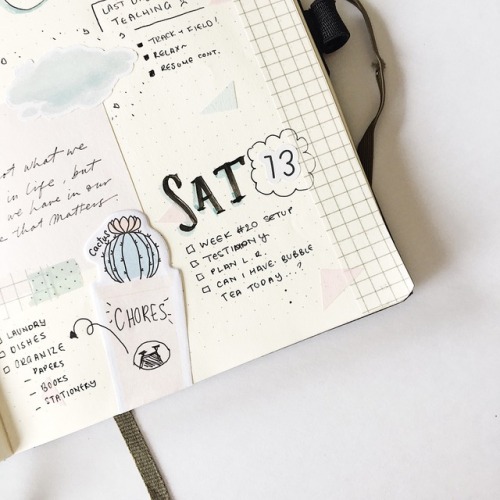 LAST
TEACHING
TRACK + FIELD!
RELAX
RESUME CONT.
ot what we
in life, but
we have in our
e that matters.
SAT 13
WEEK #20 SETUP
TESTIMONY
PLAN L.R.
CAN I HAVE BUBBLE
TEA TODAY...?
Cactus
CHORES
LAUNDRY
DISHES
ORGANIZE
- PAPERS
- BOOKS
- STATIONERY